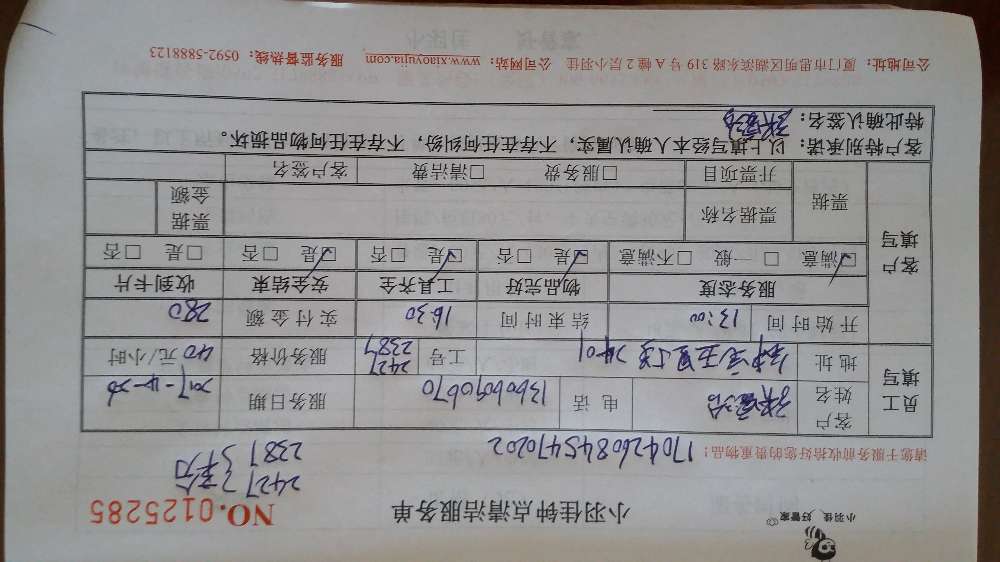 小羽佳 好管家
小羽佳钟点清洁服务单
NO.0125285
2427
2387
请您于服务前收拾好您的贵重物品：
1704260845470202
员工填写
客户姓名
电话 13606910670
服务日期 2017-4-26
地址
工号 2427 2387
服务价格 40元/小时
开始时间 13:00
结束时间 16:30
实付金额 280
客户填写
服务态度 物品完好 工具齐全 安全结束 收到卡片
☑满意 □一般 □不满意 ☑是 □否 ☑是 □否 ☑是 □否 □是 □否
票据 票据名称 票据金额
开票项目 □服务费 □清洁费 客户签名
客户特别承诺：以上填写经本人确认属实，不存在任何纠纷，不存在任何物品损坏。
特此确认签名：
公司地址：厦门市思明区湖滨东路319号A幢2层小羽佳 公司网站：www.xiaoyujia.com 服务监督热线：0592-5888123